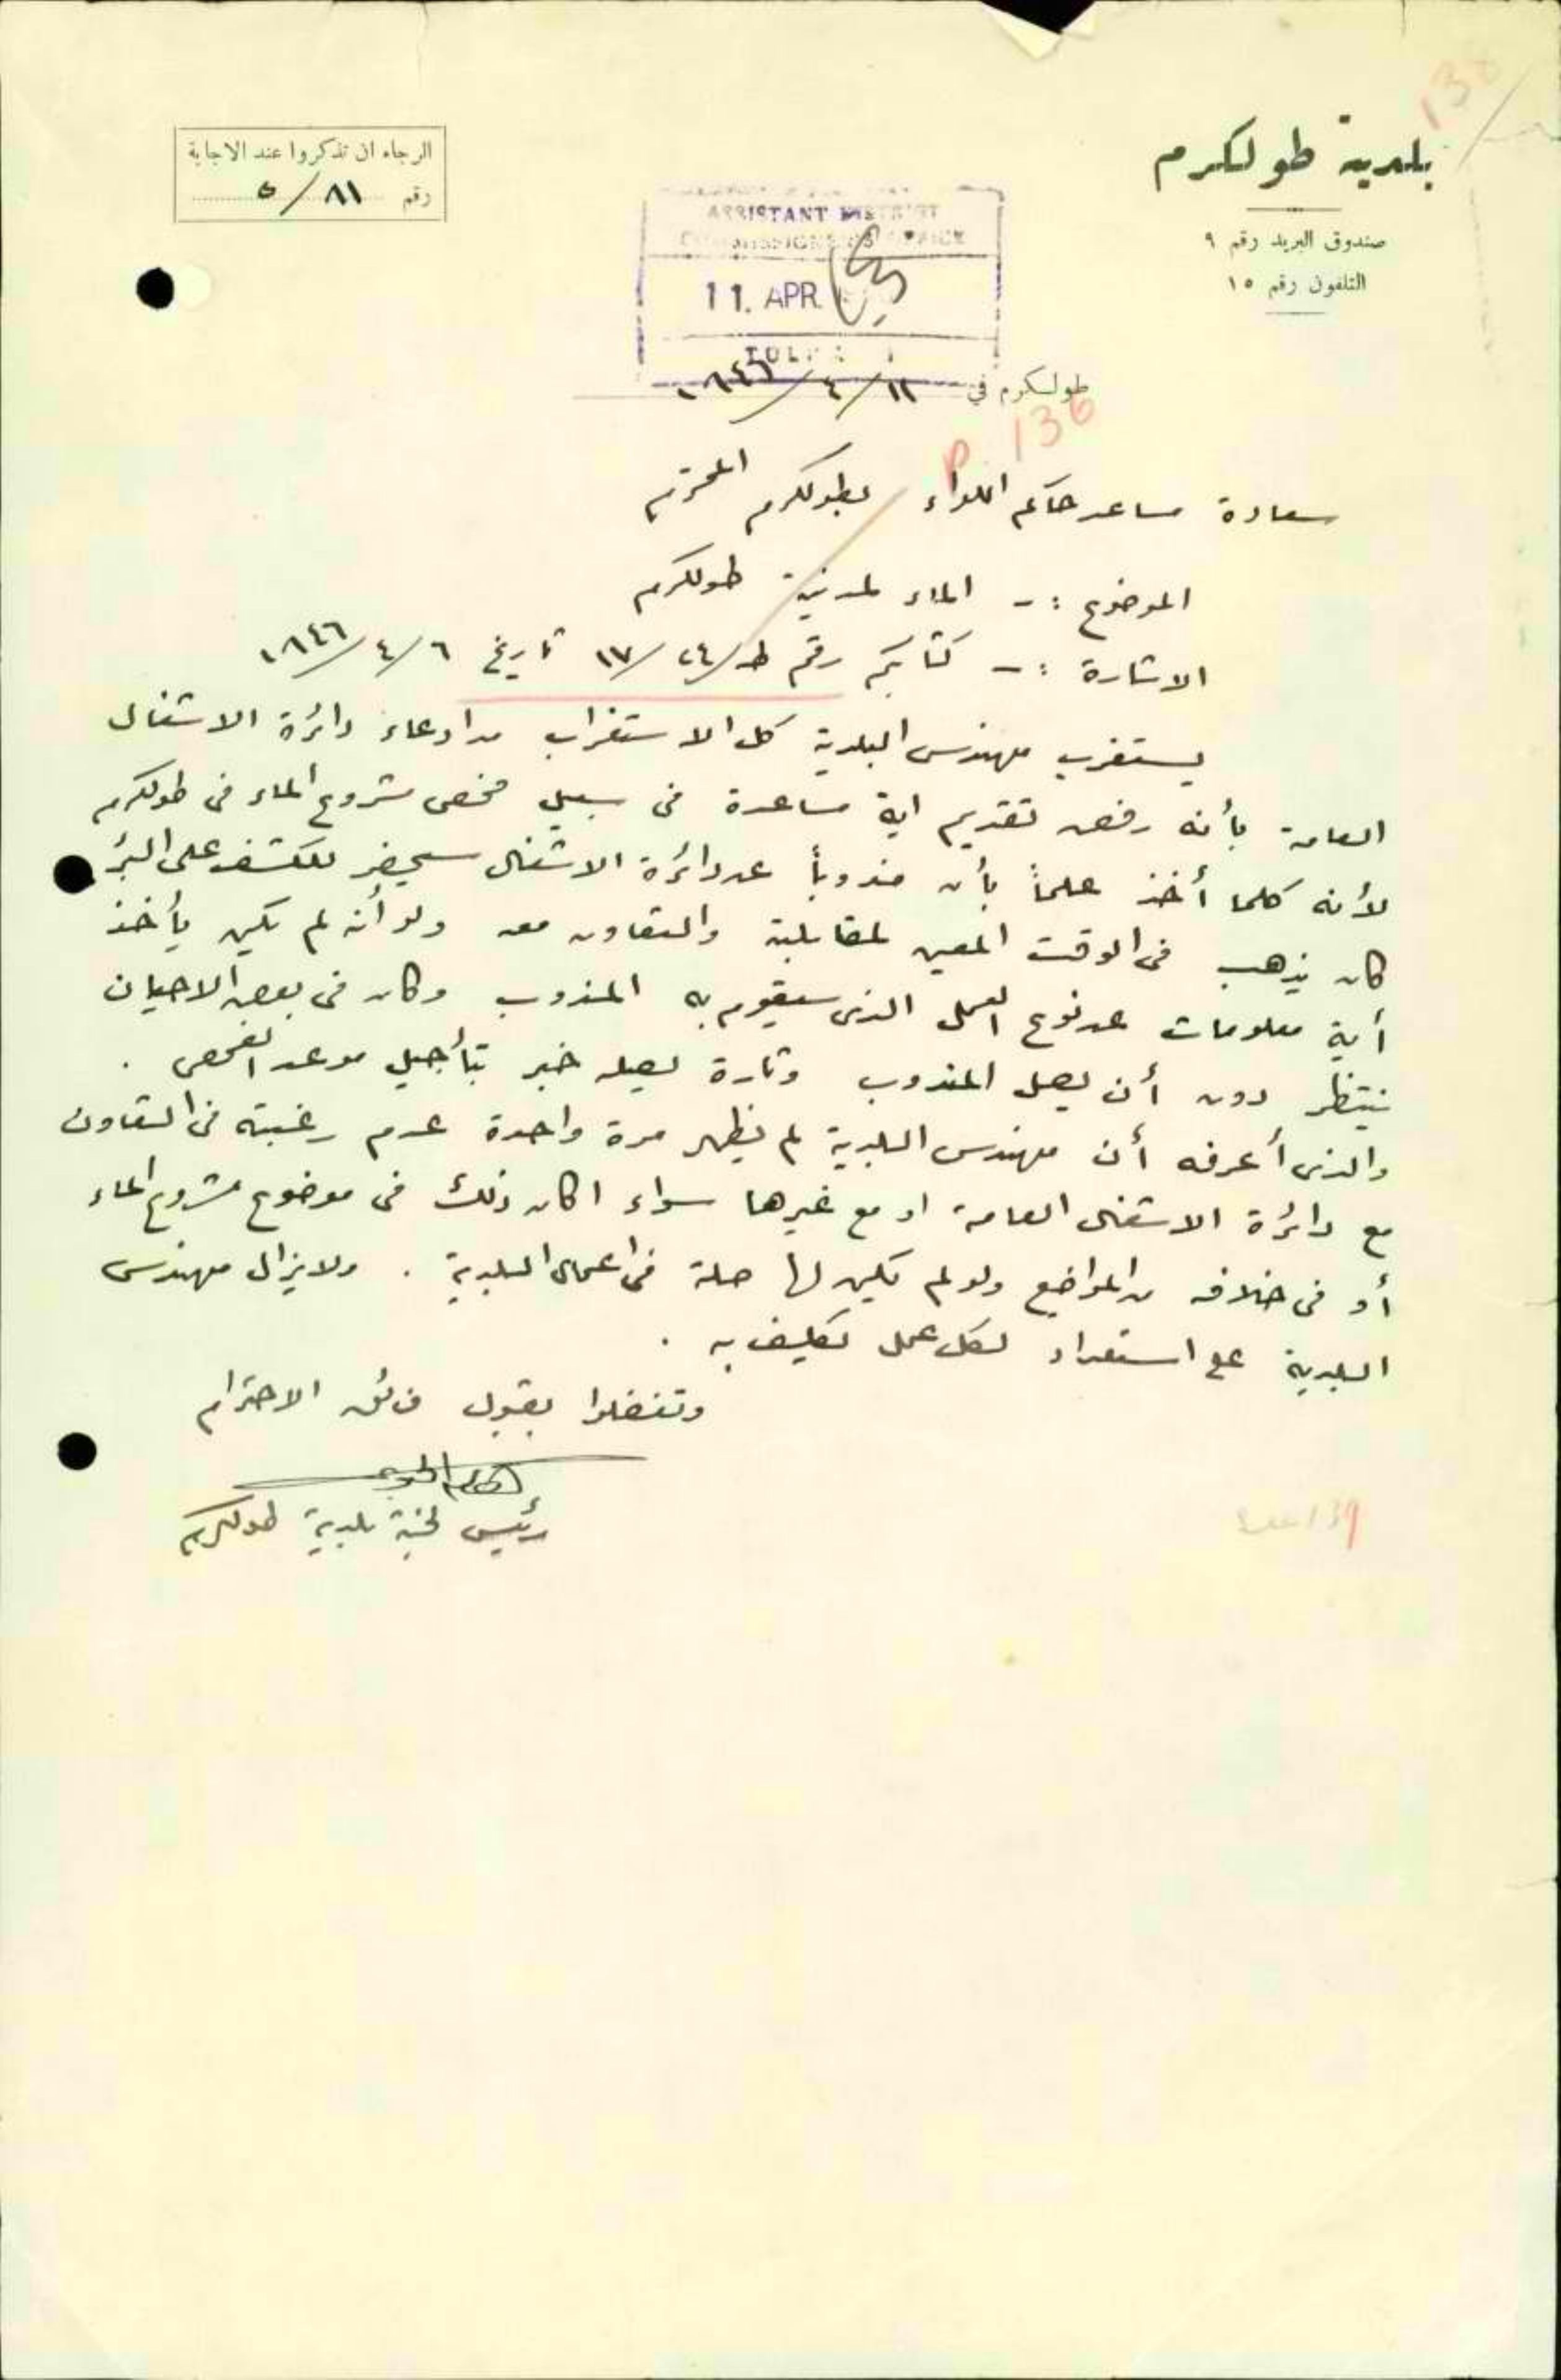 138
بلدية طولكرم
صندوق البريد رقم ٩
التلفون رقم ١٥
الرجاء ان تذكروا عند الاجابة
رقم ٨١/٥
ASSISTANT DISTRICT
COMMISSIONER'S OFFICE
11. APR.
طولكرم في ١١/٤/١٩٤٦
P. 136
سعادة مساعد حاكم اللواء بطولكرم المحترم
الموضوع :- الماء لمدينة طولكرم
الاشارة :- كتابكم رقم ط/٢٤/١٧ تاريخ ٦/٤/١٩٤٦
يستغرب مهندس البلدية كل الاستغراب من ادعاء دائرة الاشغال
العامة بأنه رفض تقديم اية مساعدة في سبيل فحص مشروع الماء في طولكرم
لأنه كلما أخذ علماً بأن مندوباً عن دائرة الاشغال سيحضر للكشف على البئر
كان يذهب في الوقت المعين لمقابلته والتعاون معه ولو أنه لم يكن يأخذ
أية معلومات عن نوع العمل الذي سيقوم به المندوب وكان في بعض الاحيان
ينتظر دون أن يصل المندوب وتارة يصله خبر بتأجيل موعد الفحص .
والذي أعرفه أن مهندس البلدية لم يظهر مرة واحدة عدم رغبته في التعاون
مع دائرة الاشغال العامة او مع غيرها سواء اكان ذلك في موضوع مشروع الماء
أو في خلافه من المواضيع ولو لم يكن لها صلة في اعمال البلدية . ولا يزال مهندس
البلدية على استعداد لكل عمل تكليف به .
وتفضلوا بقبول فائق الاحترام
رئيس لجنة بلدية طولكرم
139